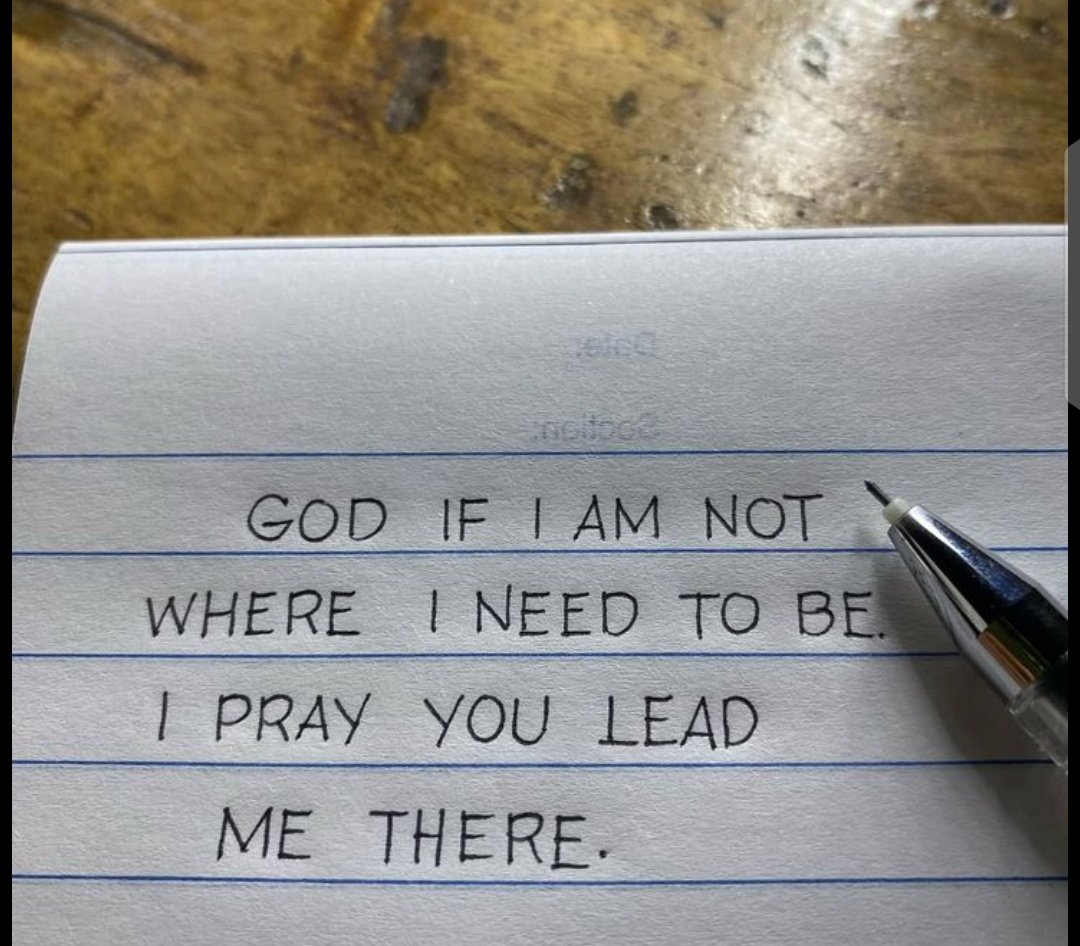 Date:
Section:
GOD IF I AM NOT
WHERE I NEED TO BE.
I PRAY YOU LEAD
ME THERE.